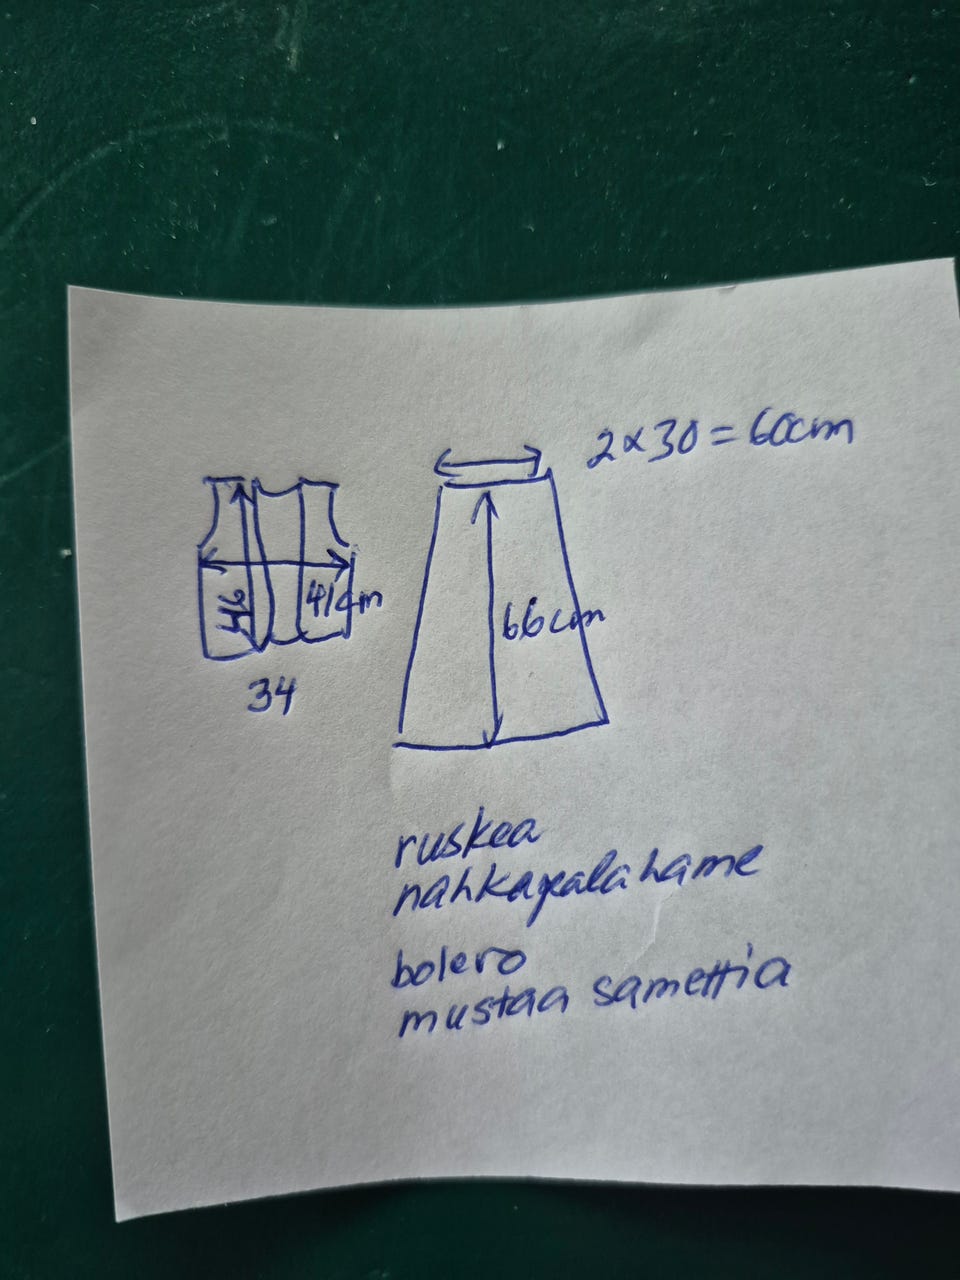 2x30=60cm
41cm
34
66cm
ruskea
nahkapalahame
bolero
mustaa samettia